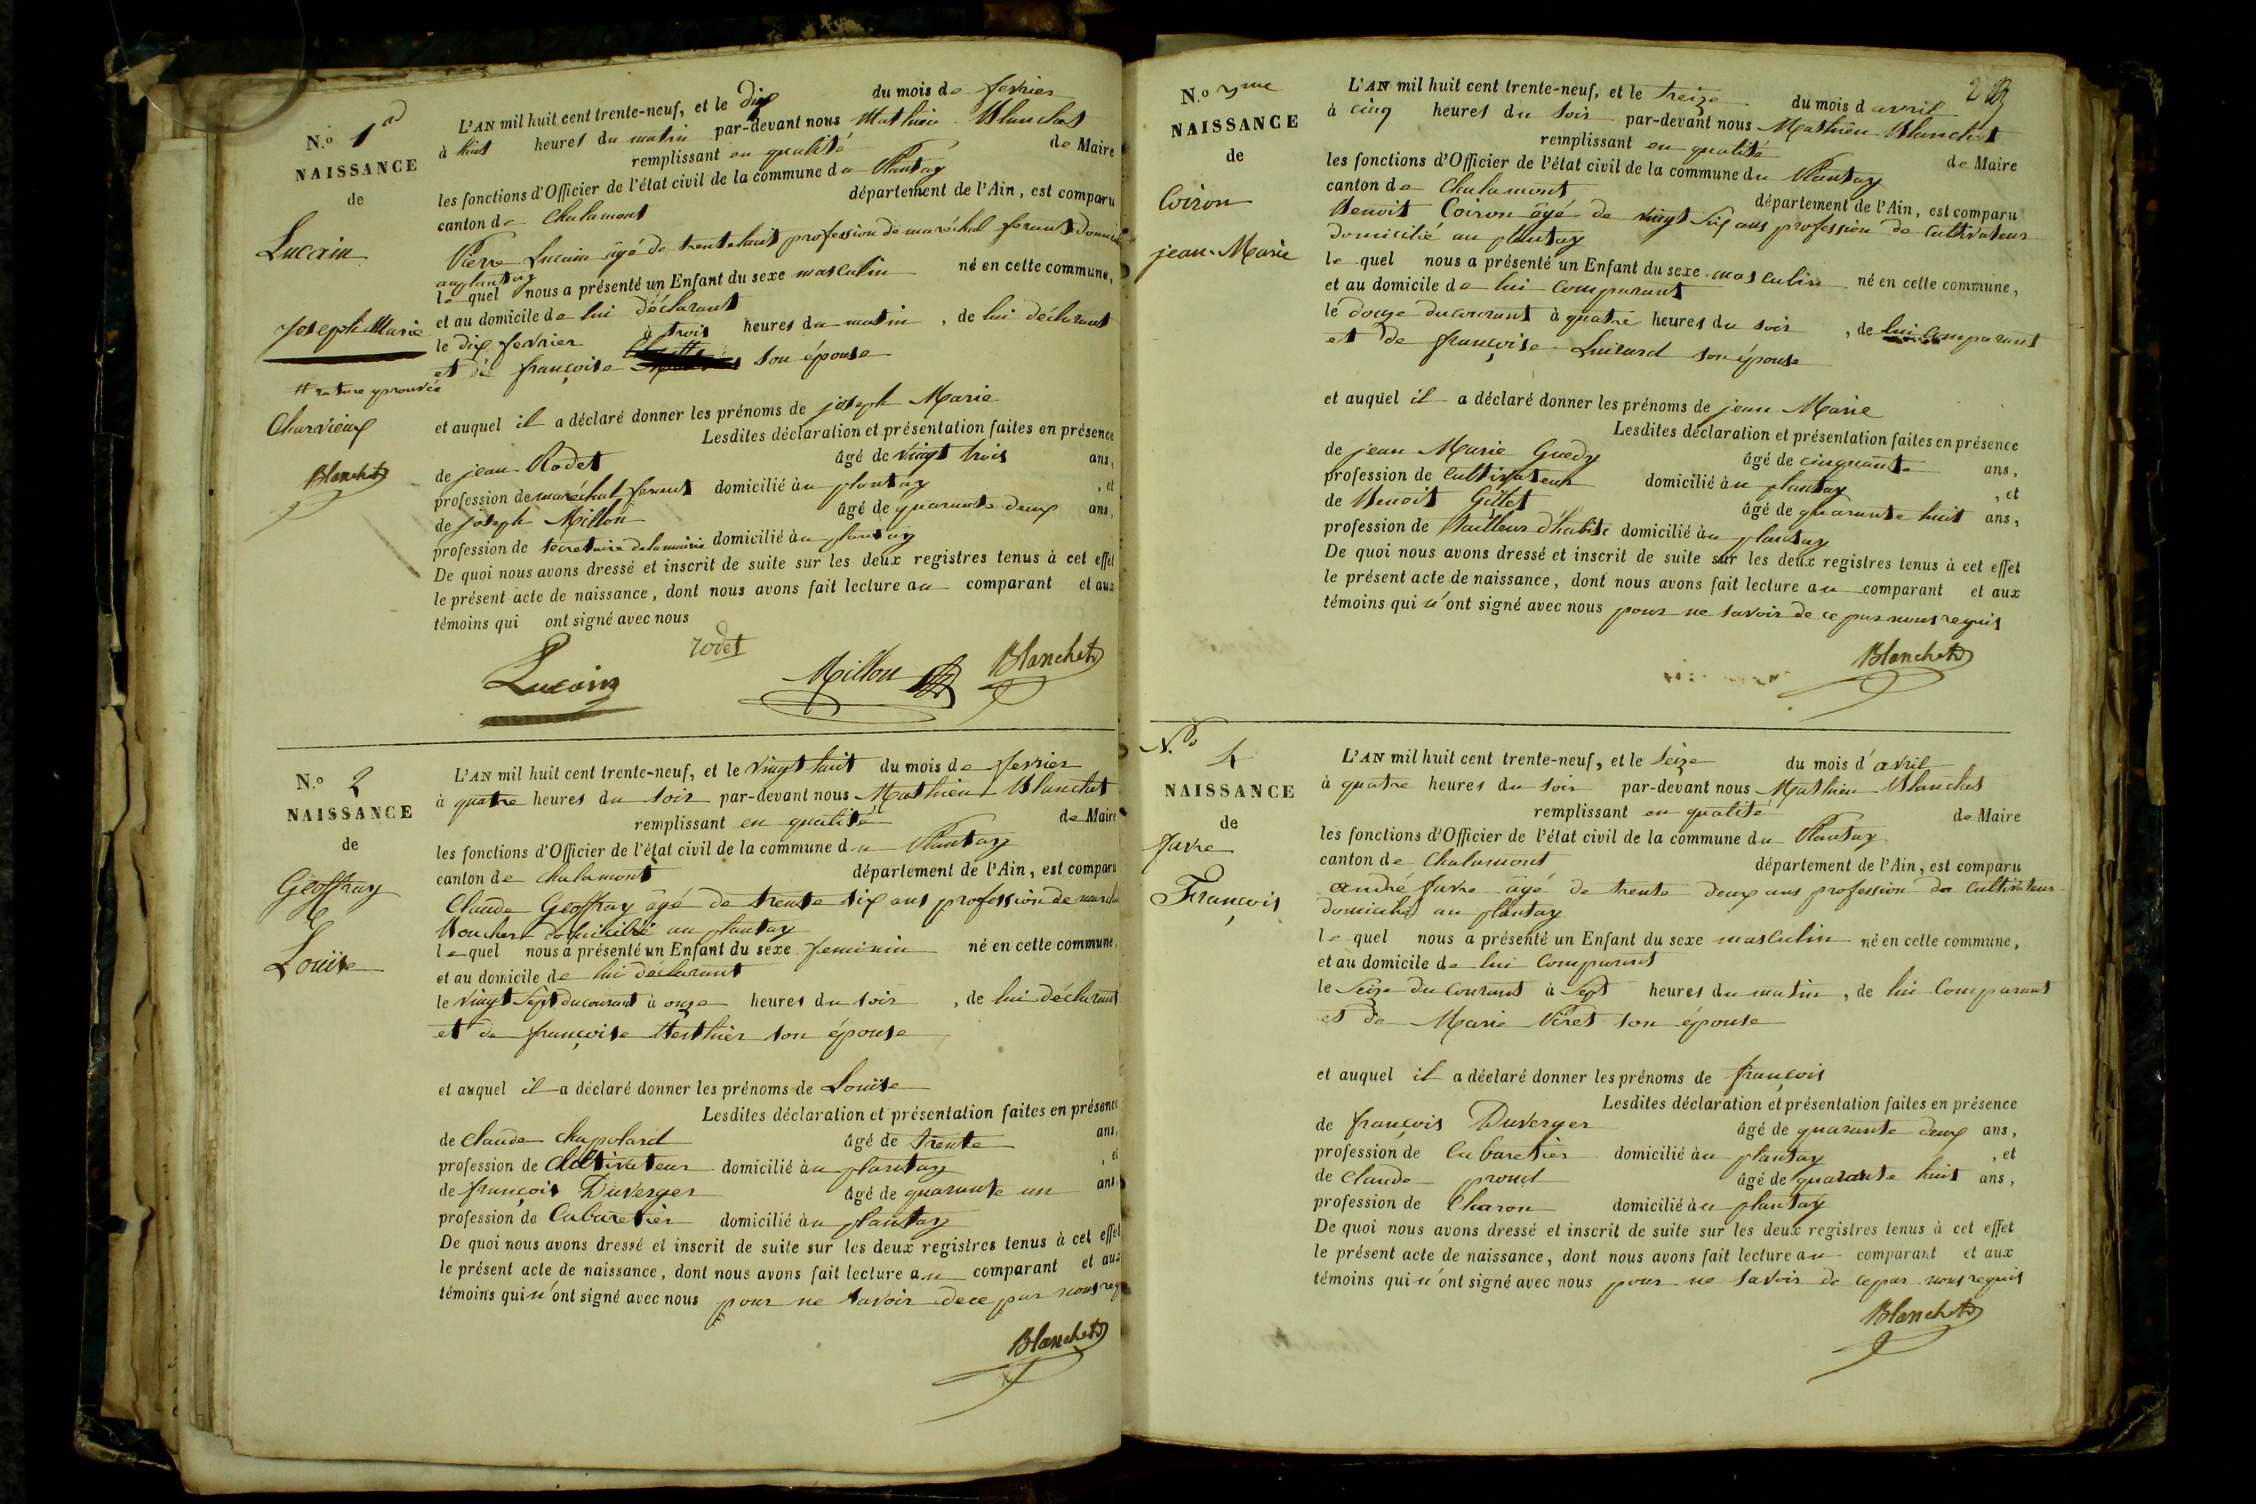 N.o 1er
NAISSANCE
de
Lucain
Joseph Marie
# rature aprouvée
Charvieux
Blanchet
L'AN mil huit cent trente-neuf, et le dix du mois de fevrier
à huit heures du matin par-devant nous Mathieu Blanchet
remplissant en qualité de Maire
les fonctions d'Officier de l'état civil de la commune du Plantay
canton de Chalamont département de l'Ain, est comparu
Pierre Lucain âgé de trente huit profession de maréchal ferant domicilié
au plantay
lequel nous a présenté un Enfant du sexe masculin né en cette commune,
et au domicile de lui déclarant
le dix fevrier à trois heures du matin, de lui déclarant
et de françoise son épouse
et auquel il a déclaré donner les prénoms de joseph Marie
Lesdites déclaration et présentation faites en présence
de jean Rodet âgé de vingt trois ans,
profession de maréchal ferant domicilié au plantay, et
de joseph Millon âgé de quarante deux ans,
profession de secretaire de la mairie domicilié au plantay
De quoi nous avons dressé et inscrit de suite sur les deux registres tenus à cet effet
le présent acte de naissance, dont nous avons fait lecture au comparant et aux
témoins qui ont signé avec nous
rodet
Lucain Millon Blanchet
N.o 2
NAISSANCE
de
Geoffray
Louise
L'AN mil huit cent trente-neuf, et le vingt huit du mois de fevrier
à quatre heures du soir par-devant nous Mathieu Blanchet
remplissant en qualité de Maire
les fonctions d'Officier de l'état civil de la commune du Plantay
canton de chalamont département de l'Ain, est comparu
Claude Geoffray âgé de trente six ans profession de marchd
Boucher domicilié au plantay
lequel nous a présenté un Enfant du sexe feminin né en cette commune,
et au domicile de lui déclarant
le vingt sept du courant à onze heures du soir, de lui déclarant
et de françoise Berthier son épouse
et auquel il a déclaré donner les prénoms de Louise
Lesdites déclaration et présentation faites en présence
de claude chapolard âgé de trente ans,
profession de Cultivateur domicilié au plantay, et
de françois Duverger âgé de quarante un ans,
profession de Cabaretier domicilié au plantay
De quoi nous avons dressé et inscrit de suite sur les deux registres tenus à cet effet
le présent acte de naissance, dont nous avons fait lecture au comparant et aux
témoins qui n'ont signé avec nous pour ne savoir de ce par nous req
Blanchet
N.o 3me
NAISSANCE
de
Coiron
jean-Marie
L'AN mil huit cent trente-neuf, et le treize du mois d avril
à cinq heures du soir par-devant nous Mathieu Blanchet
remplissant en qualité de Maire
les fonctions d'Officier de l'état civil de la commune du Plantay
canton de Chalamont département de l'Ain, est comparu
Benoit Coiron âgé de vingt six ans profession de Cultivateur
domicilié au plantay
lequel nous a présenté un Enfant du sexe masculin né en cette commune,
et au domicile de lui comparant
le douze du courant à quatre heures du soir, de lui comparant
et de françoise Luirard son épouse
et auquel il a déclaré donner les prénoms de jean Marie
Lesdites déclaration et présentation faites en présence
de jean Marie Guedy âgé de cinquante ans,
profession de Cultivateur domicilié au plantay, et
de Benoit Gillet âgé de quarante huit ans,
profession de Tailleur d'habits domicilié au plantay
De quoi nous avons dressé et inscrit de suite sur les deux registres tenus à cet effet
le présent acte de naissance, dont nous avons fait lecture au comparant et aux
témoins qui n'ont signé avec nous pour ne savoir de ce par nous requis
Blanchet
N.o 4
NAISSANCE
de
favre
François
L'AN mil huit cent trente-neuf, et le seize du mois d'avril
à quatre heures du soir par-devant nous Mathieu Blanchet
remplissant en qualité de Maire
les fonctions d'Officier de l'état civil de la commune du Plantay
canton de Chalamont département de l'Ain, est comparu
andré favre âgé de trente deux ans profession de Cultivateur
domicilié au plantay
lequel nous a présenté un Enfant du sexe masculin né en cette commune,
et au domicile de lui Comparant
le seize du courant à sept heures du matin, de lui Comparant
et de Marie Viret son épouse
et auquel il a déclaré donner les prénoms de françois
Lesdites déclaration et présentation faites en présence
de françois Duverger âgé de quarante deux ans,
profession de Cabaretier domicilié au plantay, et
de Claude proud âgé de quarante huit ans,
profession de Charon domicilié au plantay
De quoi nous avons dressé et inscrit de suite sur les deux registres tenus à cet effet
le présent acte de naissance, dont nous avons fait lecture au comparant et aux
témoins qui n'ont signé avec nous pour ne savoir de ce par nous requis
Blanchet